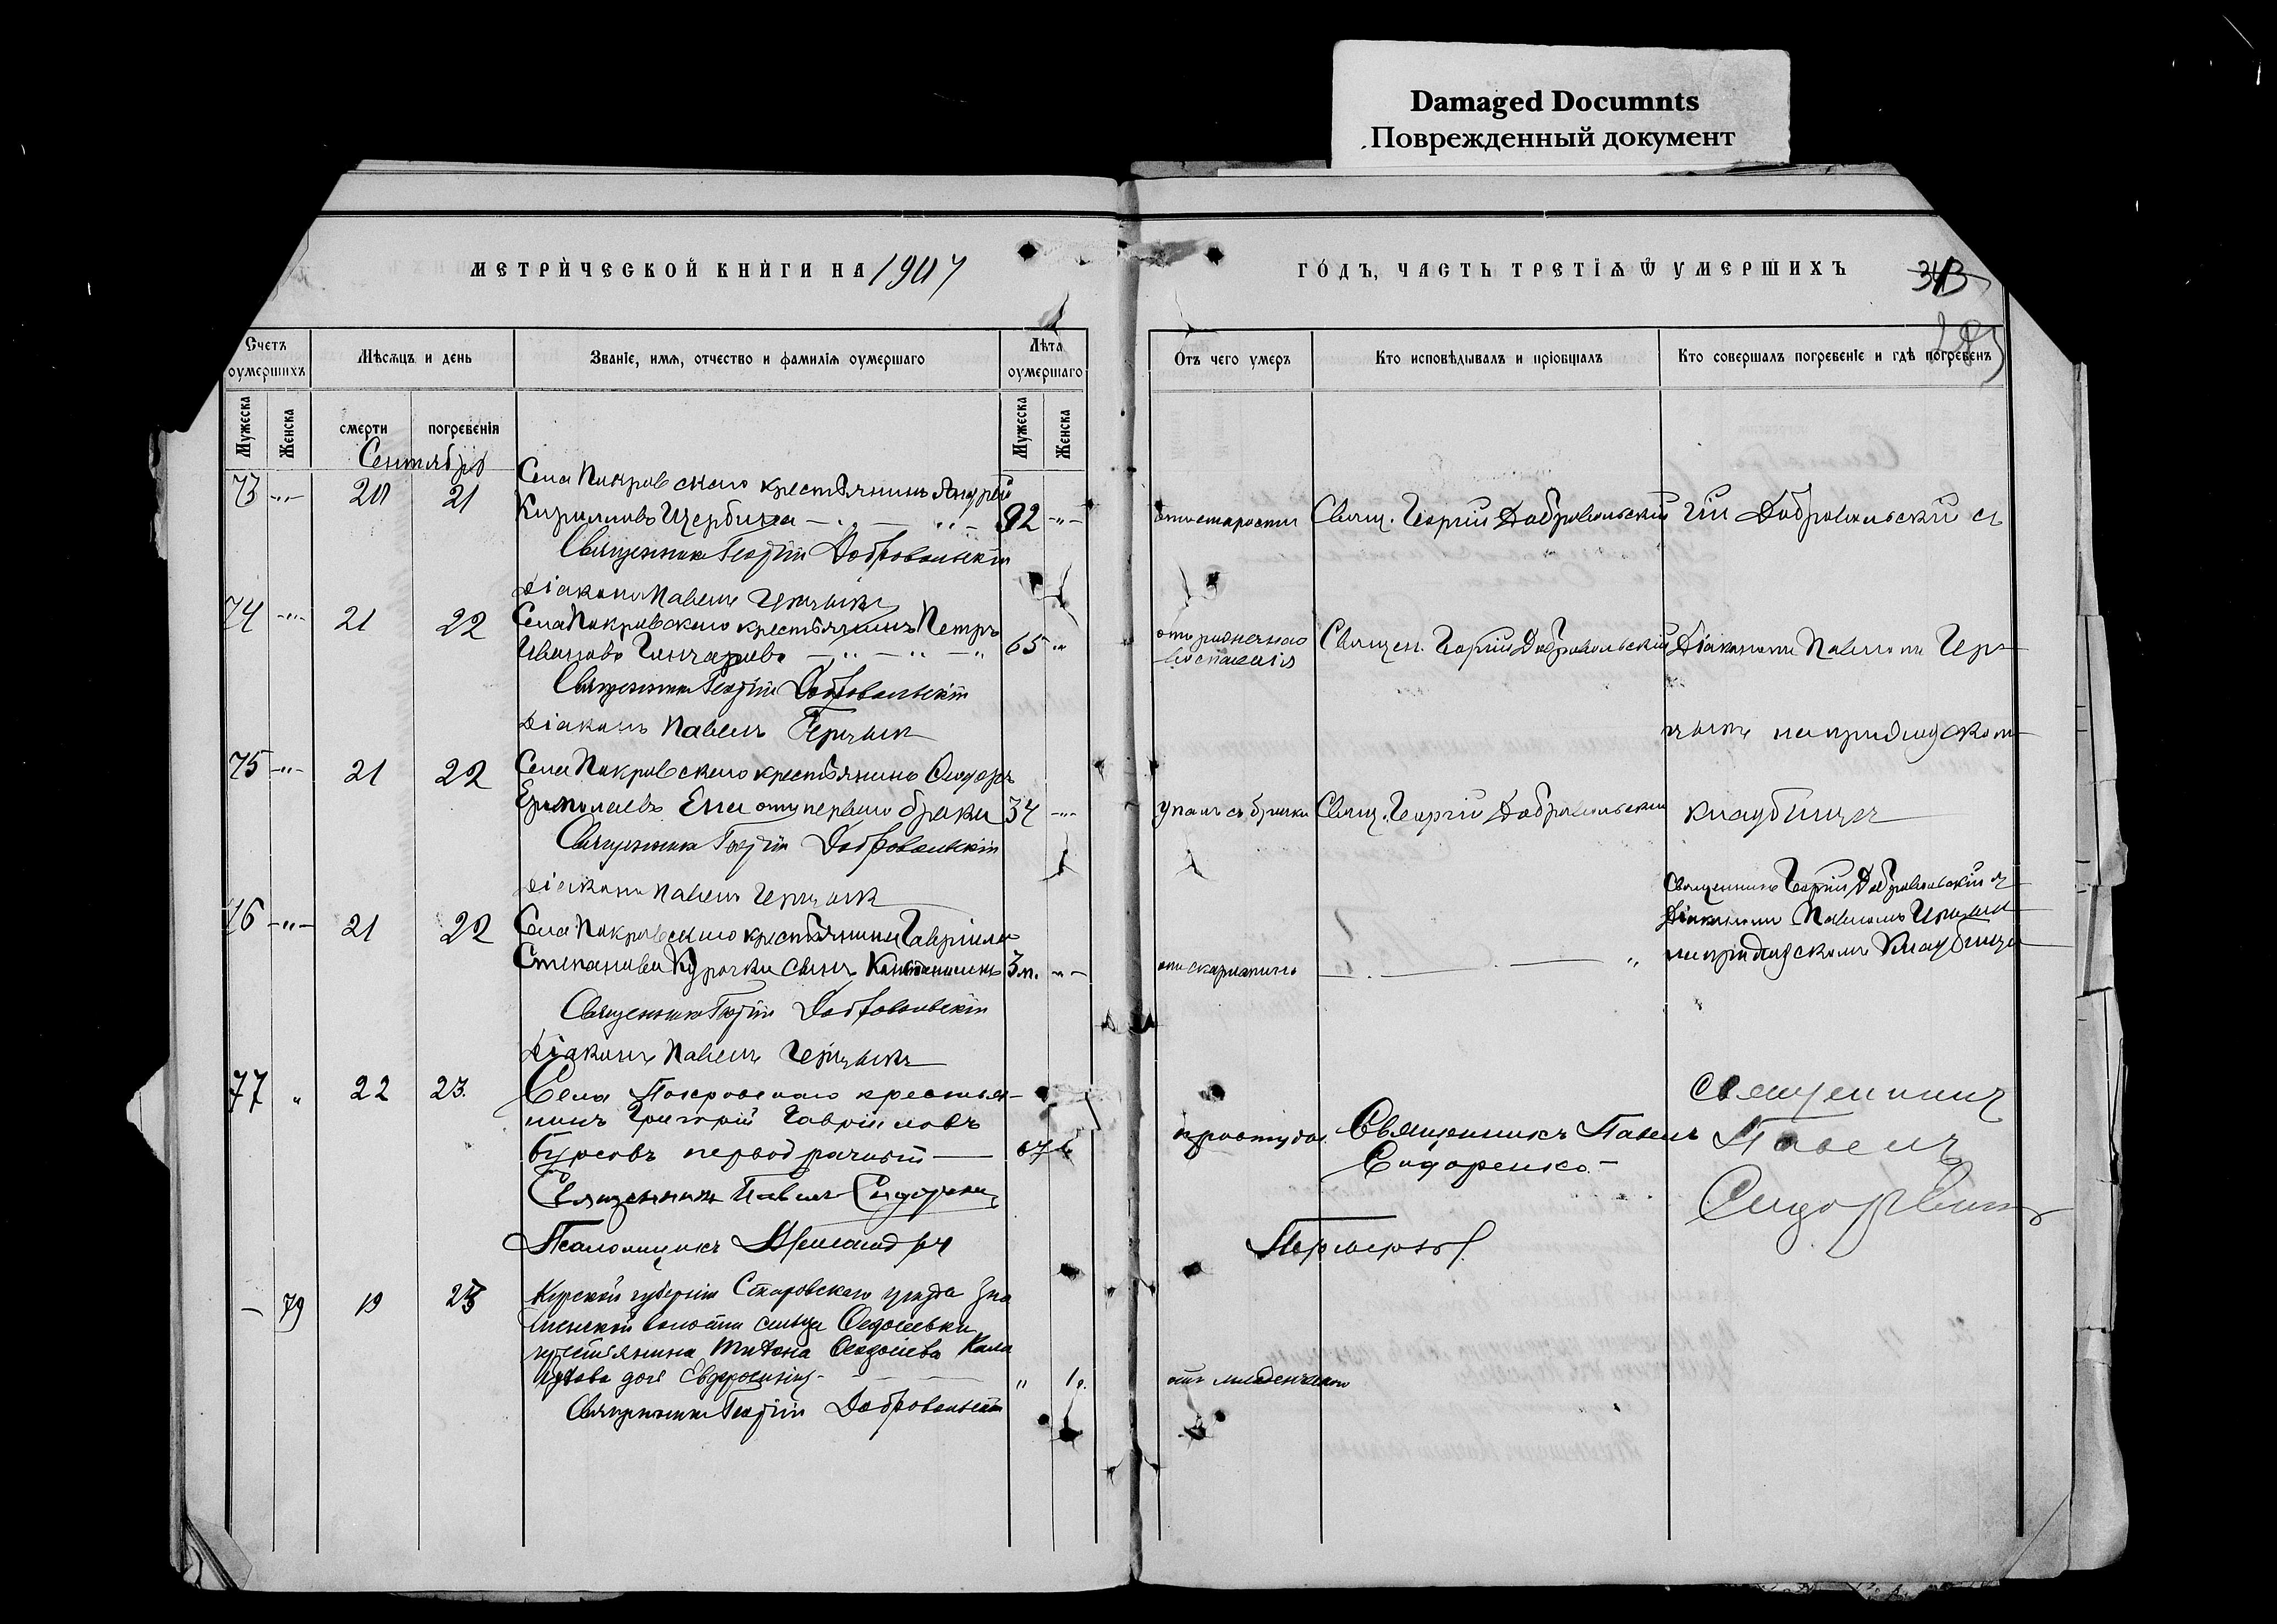 Damaged Documnts
Поврежденный документ
МЕТРИЧЕСКОЙ КНИГИ НА 1907
ГОДЪ, ЧАСТЬ ТРЕТІѦ Ѿ УМЕРШИХЪ
343
Счетъ оумершихъ
Мѣсѧцъ и день
Званіе, имѧ, отчество и фамиліѧ оумершаго
Лѣта оумершаго
Отъ чего умеръ
Кто исповѣдывалъ и пріобщалъ
Кто совершалъ погребеніе и гдѣ погребенъ
Мужеска
Женска
смерти
погребенія
Мужеска
Женска
Сентябрь
73 -"- 20 21 Села Покровскаго крестьянинъ Андрей
Кирилловъ Щербина 92 -"- отъ старости Свящ. Георгій Добровольскій гій Добровольскій съ
Священникъ Георгій Добровольскій
Діаконъ Павелъ
74 -"- 21 22 Села Покровскаго крестьянинъ Петръ
Ивановъ Гончаровъ 65 " отъ
воспаленія Священ. Георгій Добровольскій Діакономъ Павломъ
Священникъ Георгій Добровольскій
Діаконъ Павелъ
на приходском
75 -"- 21 22 Села Покровскаго крестьянинъ Ѳеодоръ
Ермолаевъ перваго брака 34 -"- упалъ съ брички Свящ. Георгій Добровольскій кладбищѣ
Священникъ Георгій Добровольскій
Діаконъ Павелъ
Священникъ Георгій Добровольскій съ
Діакономъ Павломъ
на приходскомъ кладбищѣ
76 -"- 21 22 Села Покровскаго крестьянина Гавріила
Степанова Курочки сынъ Константинъ 3 м. -"- отъ скарлатины
Священникъ Георгій Добровольскій
Діаконъ Павелъ
77 " 22 23. Села Покровскаго крестья-
нинъ Григорій Гавріиловъ
первобрачный 67 " простуда Священникъ Павелъ
Сидоренко
Священникъ
Павелъ
Сидоренко
Священникъ Павелъ Сидоренко
Псаломщикъ
- 79 19 23 Курской губерніи уѣзда Зна
менской волости сельца Ѳедосѣевки
крестьянина Ѳеодосіева
дочь Евфросинія " 1 г. отъ младенческой
Священникъ Георгій Добровольскій